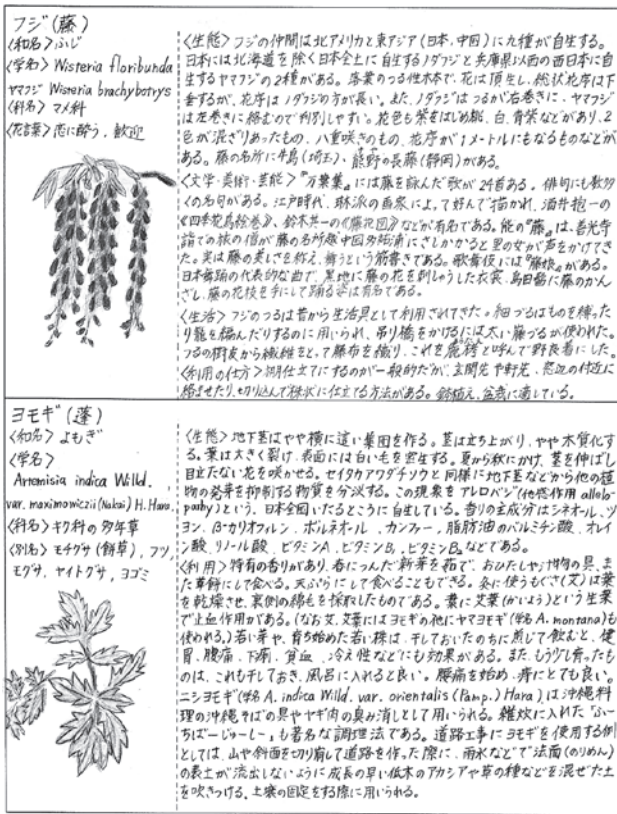 フジ(藤)
〈和名〉ふじ
〈学名〉Wisteria floribunda
ヤマフジ Wisteria brachybotrys
〈科名〉マメ科
〈花言葉〉恋に酔う、歓迎
〈生態〉フジの仲間は北アメリカと東アジア(日本、中国)に九種が自生する。
日本には北海道を除く日本全土に自生するノダフジと兵庫県以西の西日本に自
生するヤマフジの2種がある。落葉のつる性木本で、花は頂生し、総状花序は下
垂するが、花序はノダフジの方が長い。また、ノダフジはつるが右巻きに、ヤマフジ
は左巻きに絡むので判別しやすい。花色も紫をはじめ桃、白、青紫などがあり、2
色が混ざりあったもの、八重咲きのもの、花序が1メートルにもなるものなどが
ある。藤の名所に牛島(埼玉)、熊野の長藤(静岡)がある。
〈文学・美術・芸能〉『万葉集』には藤を詠んだ歌が24首ある。俳句にも数多
くの名句がある。江戸時代、琳派の画家によって好んで描かれ、酒井抱一の
《四季花鳥絵巻》、鈴木其一の《藤花図》などが有名である。能の『藤』は、善光寺
詣での旅の僧が藤の名所越中国多祜浦にさしかかると里の女が声をかけてき
た。実は藤の美しさを称え、舞うという筋書きである。歌舞伎には『藤娘』がある。
日本舞踊の代表的な曲で、黒地に藤の花を刺しゅうした衣裳、島田髷に藤のかん
ざし、藤の花枝を手にして踊る姿は有名である。
〈生活〉フジのつるは昔から生活具として利用されてきた。細づるはものを縛った
り籠を編んだりするのに用いられ、吊り橋をかけるには太い藤づるが使われた。
つるの樹皮から繊維をとって藤布を織り、これを と呼んで野良着にした。
〈利用の仕方〉棚仕立てにするのが一般的だが、玄関先や軒先、窓辺の付近に
絡ませたり、切り込んで株状に仕立てる方法がある。鉢植え、盆栽に適している。
ヨモギ(蓬)
〈和名〉よもぎ
〈学名〉
Artemisia indica Willd.
var. maximowiczii (Nakai) H. Hara.
〈科名〉キク科の多年草
〈別名〉モチグサ(餅草)、フツ、
モグサ、ヤイトグサ、ヨゴミ
〈生態〉地下茎はやや横に這い集団を作る。茎は立ち上がり、やや木質化す
る。葉は大きく裂け、表面には白い毛を密生する。夏から秋にかけ、茎を伸ばし
目立たない花を咲かせる。セイタカアワダチソウと同様に地下茎などから他の植
物の発芽を抑制する物質を分泌する。この現象をアレロパシー(他感作用 allelo-
pathy)という。日本全国いたるところに自生している。香りの主成分はシネオール、ツ
ヨン、β-カリオフィレン、ボルネオール、カンファー、脂肪油のパルミチン酸、オレイ
ン酸、リノール酸、ビタミンA、ビタミンB₁、ビタミンB₂などである。
〈利用〉特有の香りがあり、春につんだ新芽を茹で、おひたしや汁物の具、ま
た草餅にして食べる。天ぷらにして食べることもできる。灸に使うもぐさ(艾)は葉
を乾燥させ、裏側の綿毛を採取したものである。葉に艾葉(がいよう)という生薬
で止血作用がある。(なお艾、艾葉にはヨモギの他にヤマヨモギ(学名 A. montana)も
使われる。)若い芽や、育ち始めた若い株は、干しておいたのちに煎じて飲むと、健
胃、腹痛、下痢、貧血、冷え性などにも効果がある。また、もう少し育ったも
のは、これも干しておき、風呂に入れると良い。腰痛を始め、痔にとても良い。
ニシヨモギ(学名 A. indica Willd. var. orientalis (Pamp.) Hara) は沖縄料
理の沖縄そばの具やヤギ肉の臭み消しとして用いられる。雑炊に入れた「ふー
ちばーじゅーしー」も著名な調理法である。道路工事にヨモギを使用する例
としては、山や斜面を切り崩して道路を作った際に、雨水などで法面(のりめん)
の表土が流出しないように成長の早い低木のアカシアや草の種などを混ぜた土
を吹きつける、土壌の固定をする際に用いられる。